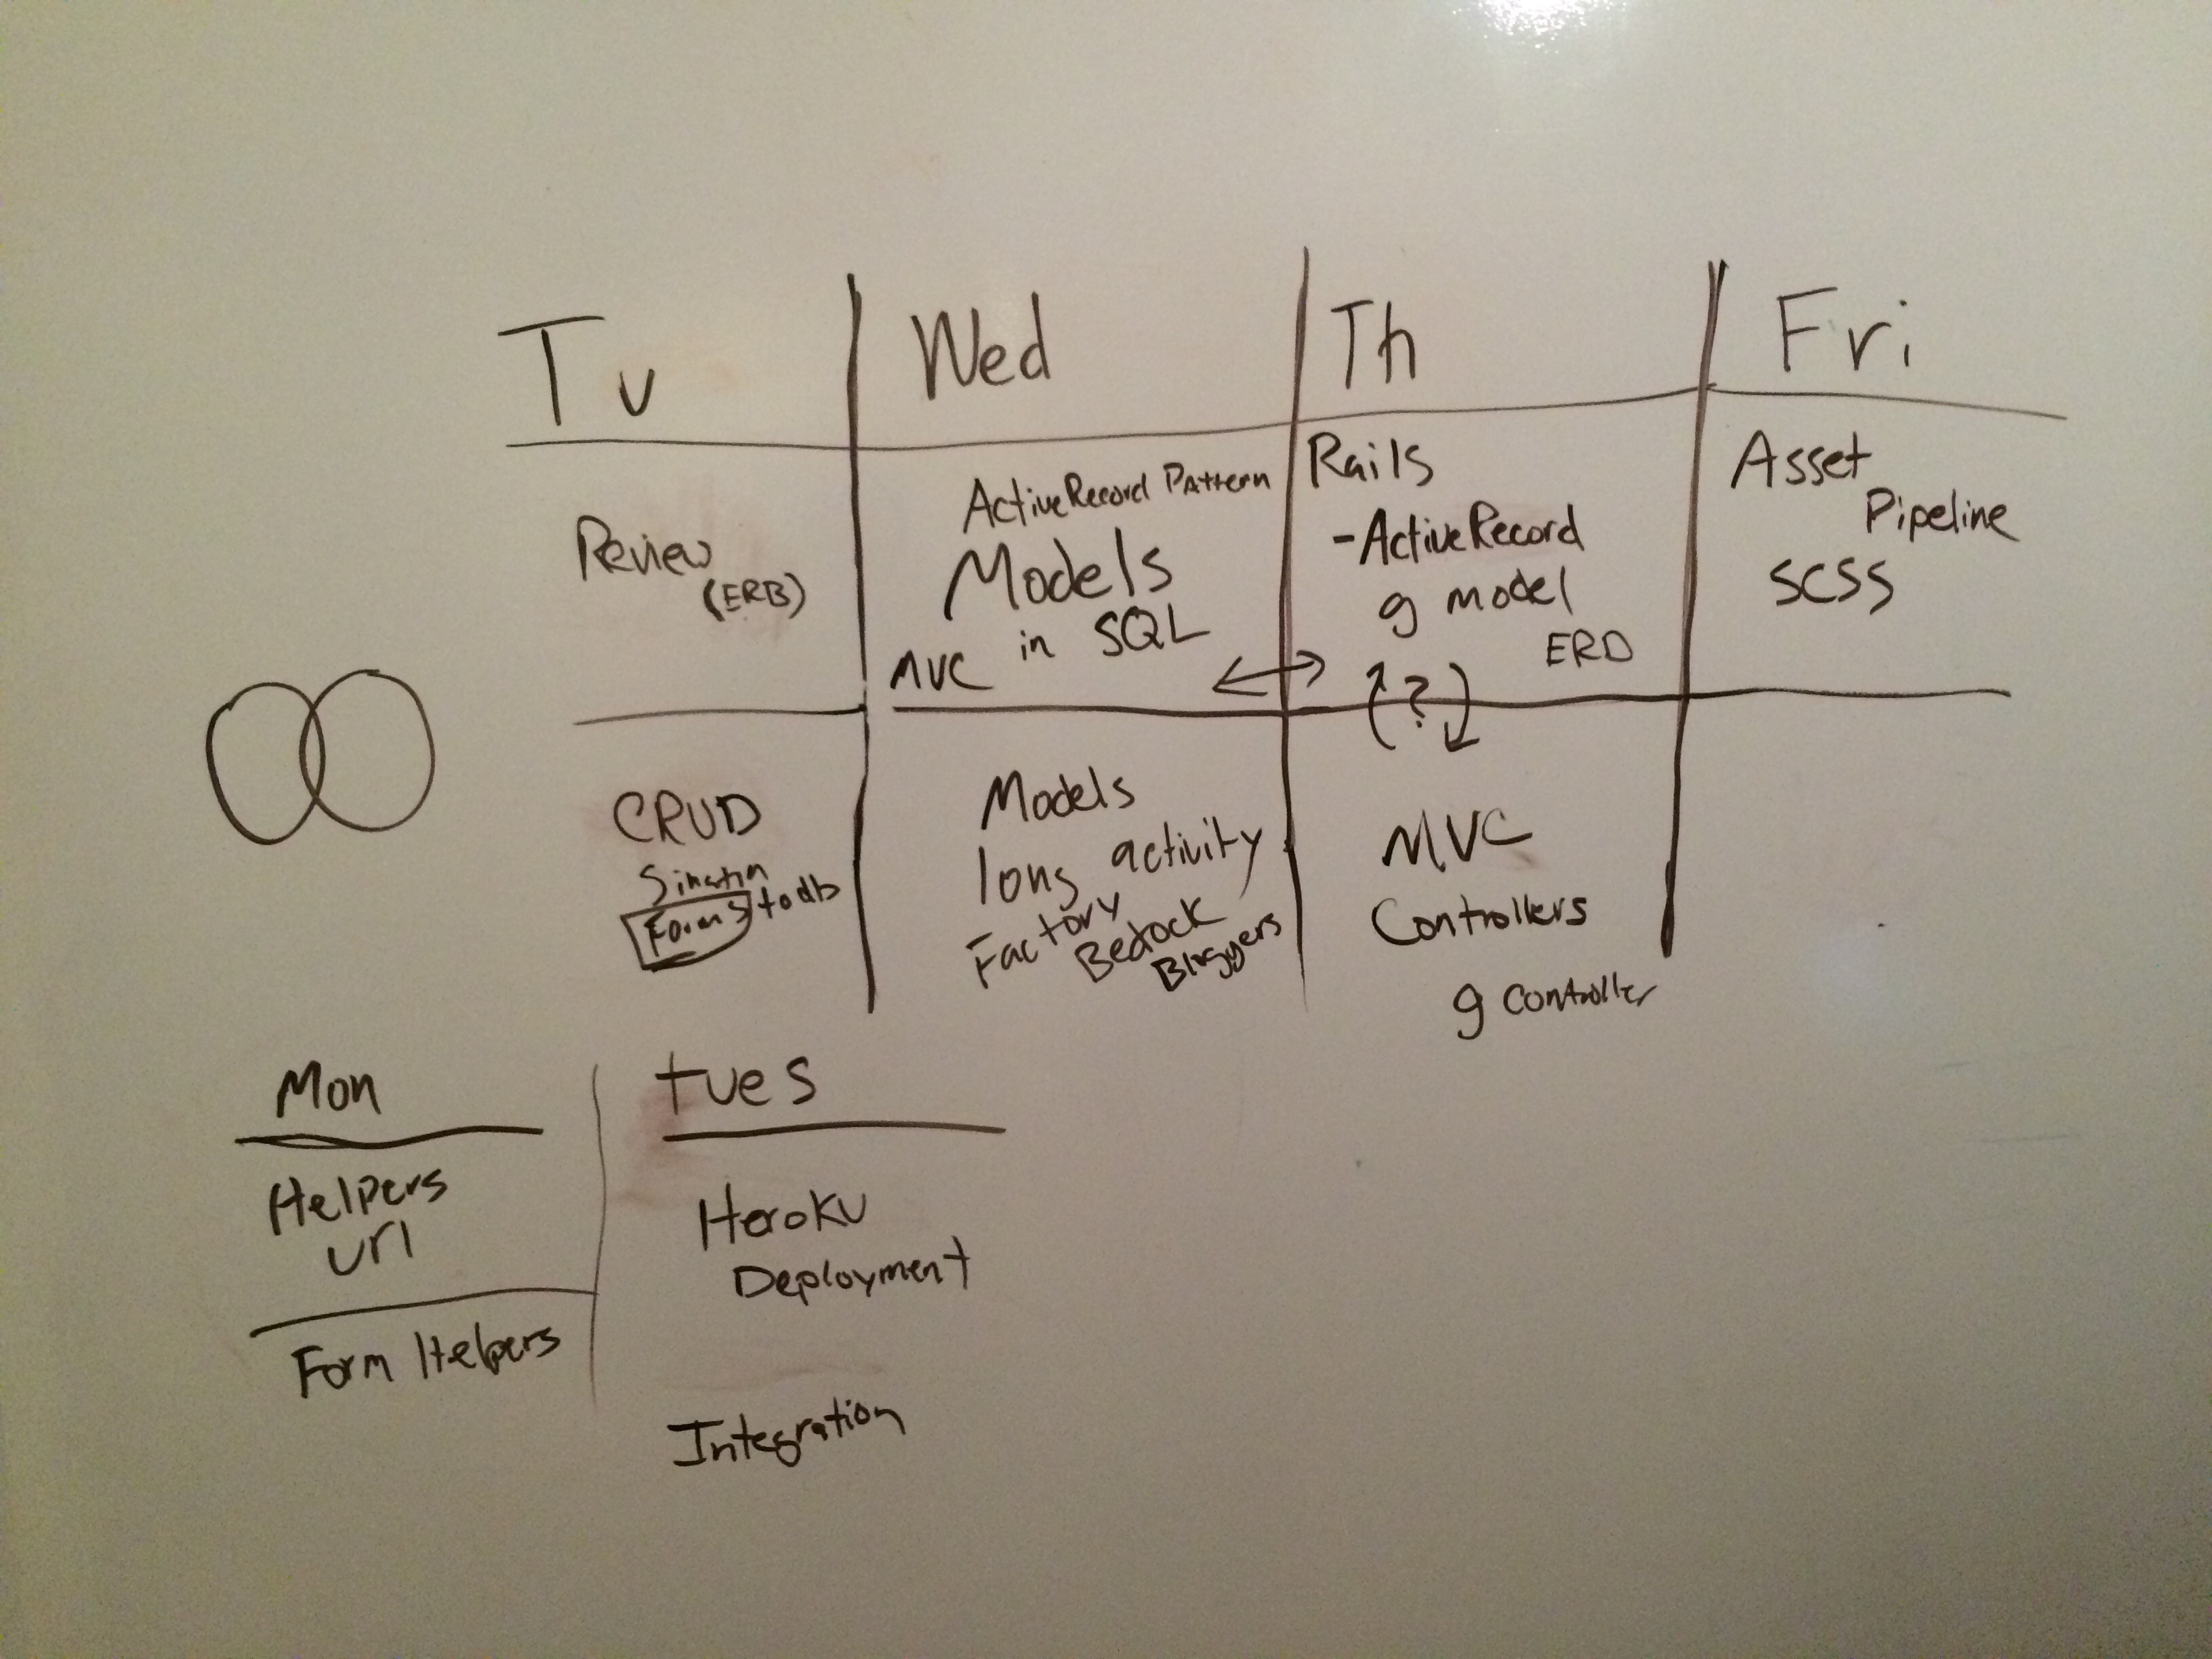 Tu
Wed
Th
Fri
Review
(ERB)
ActiveRecord Pattern
Models
in SQL
MVC
Rails
-ActiveRecord
g model
ERD
?
Asset
Pipeline
SCSS
CRUD
Sinatra
Forms to db
Models
long activity
Factory
Bedrock
Bloggers
MVC
Controllers
g controller
Mon
Helpers
url
Form Helpers
tues
Heroku
Deployment
Integration